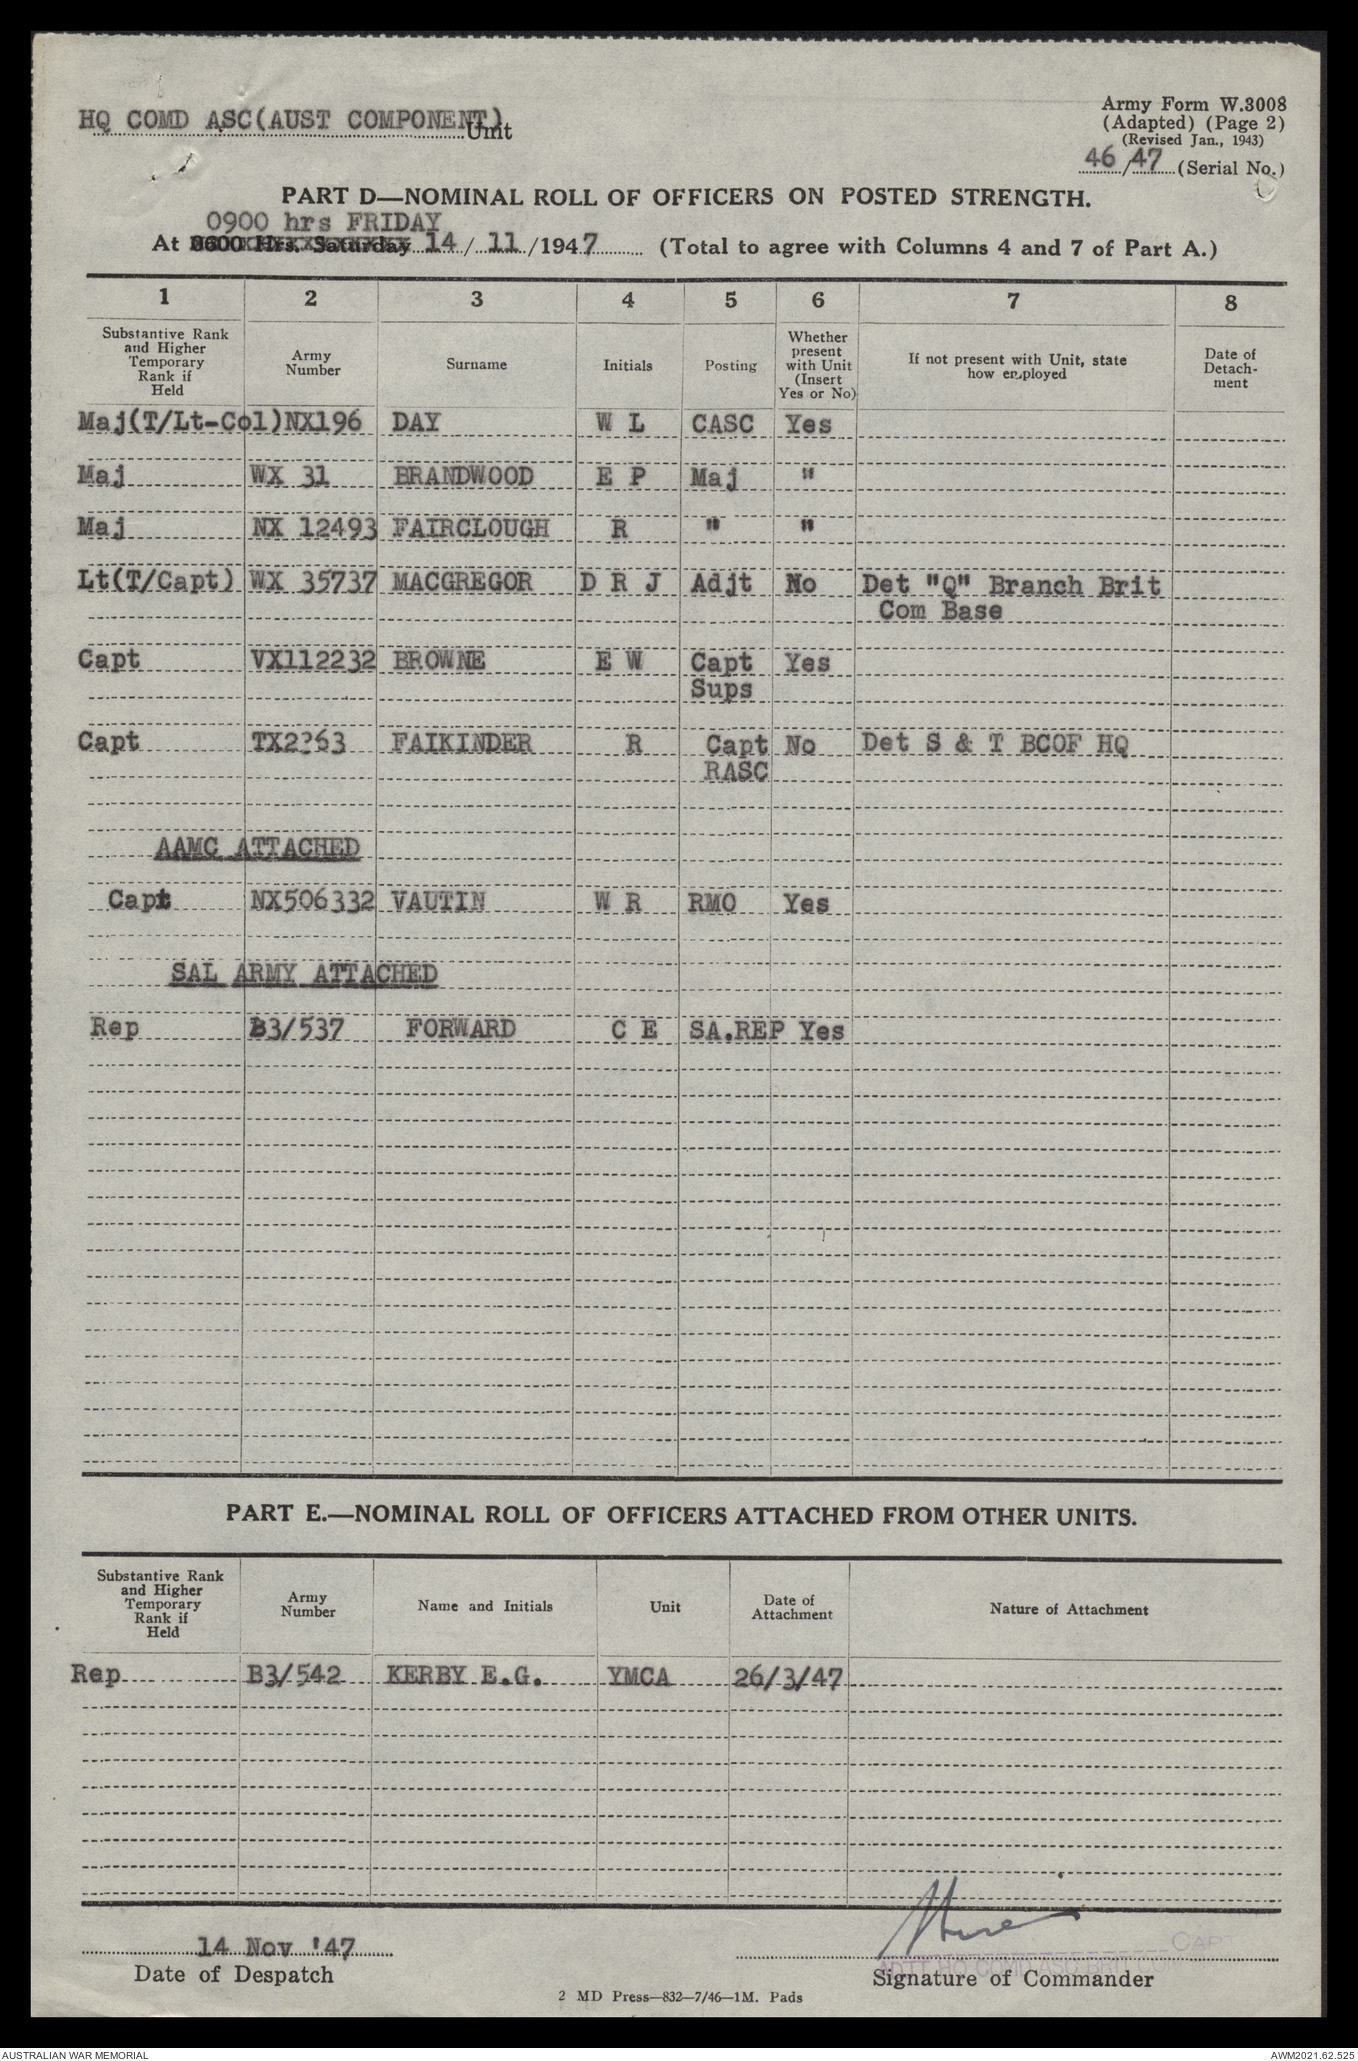 HQ COMD ASC(AUST COMPONENT) Unit
Army Form W.3008
(Adapted) (Page 2)
(Revised Jan., 1943)
46/47 (Serial No.)
PART D—NOMINAL ROLL OF OFFICERS ON POSTED STRENGTH.
0900 hrs FRIDAY
At 0600 Hrs. Saturday 14/11/1947 (Total to agree with Columns 4 and 7 of Part A.)
1 2 3 4 5 6 7 8
Substantive Rank and Higher Temporary Rank if Held Army Number Surname Initials Posting Whether present with Unit (Insert Yes or No) If not present with Unit, state how employed Date of Detach-ment
Maj(T/Lt-Col) NX196 DAY W L CASC Yes
Maj WX 31 BRANDWOOD E P Maj "
Maj NX 12493 FAIRCLOUGH R " "
Lt(T/Capt) WX 35737 MACGREGOR D R J Adjt No Det "Q" Branch Brit
Com Base
Capt VX112232 BROWNE E W Capt Yes
Sups
Capt FAIKINDER R Capt No Det S & T BCOF HQ
RASC
AAMC ATTACHED
Capt NX506332 VAUTIN W R RMO Yes
SAL ARMY ATTACHED
Rep B3/537 FORWARD C E SA.REP Yes
PART E.—NOMINAL ROLL OF OFFICERS ATTACHED FROM OTHER UNITS.
Substantive Rank and Higher Temporary Rank if Held Army Number Name and Initials Unit Date of Attachment Nature of Attachment
Rep B3/542 KERBY E.G. YMCA 26/3/47
14 Nov '47
Date of Despatch
CAPT
ADJT HQ COMD ASC BRIT COM
Signature of Commander
2 MD Press—832—7/46—1M. Pads
AUSTRALIAN WAR MEMORIAL
AWM2021.62.525